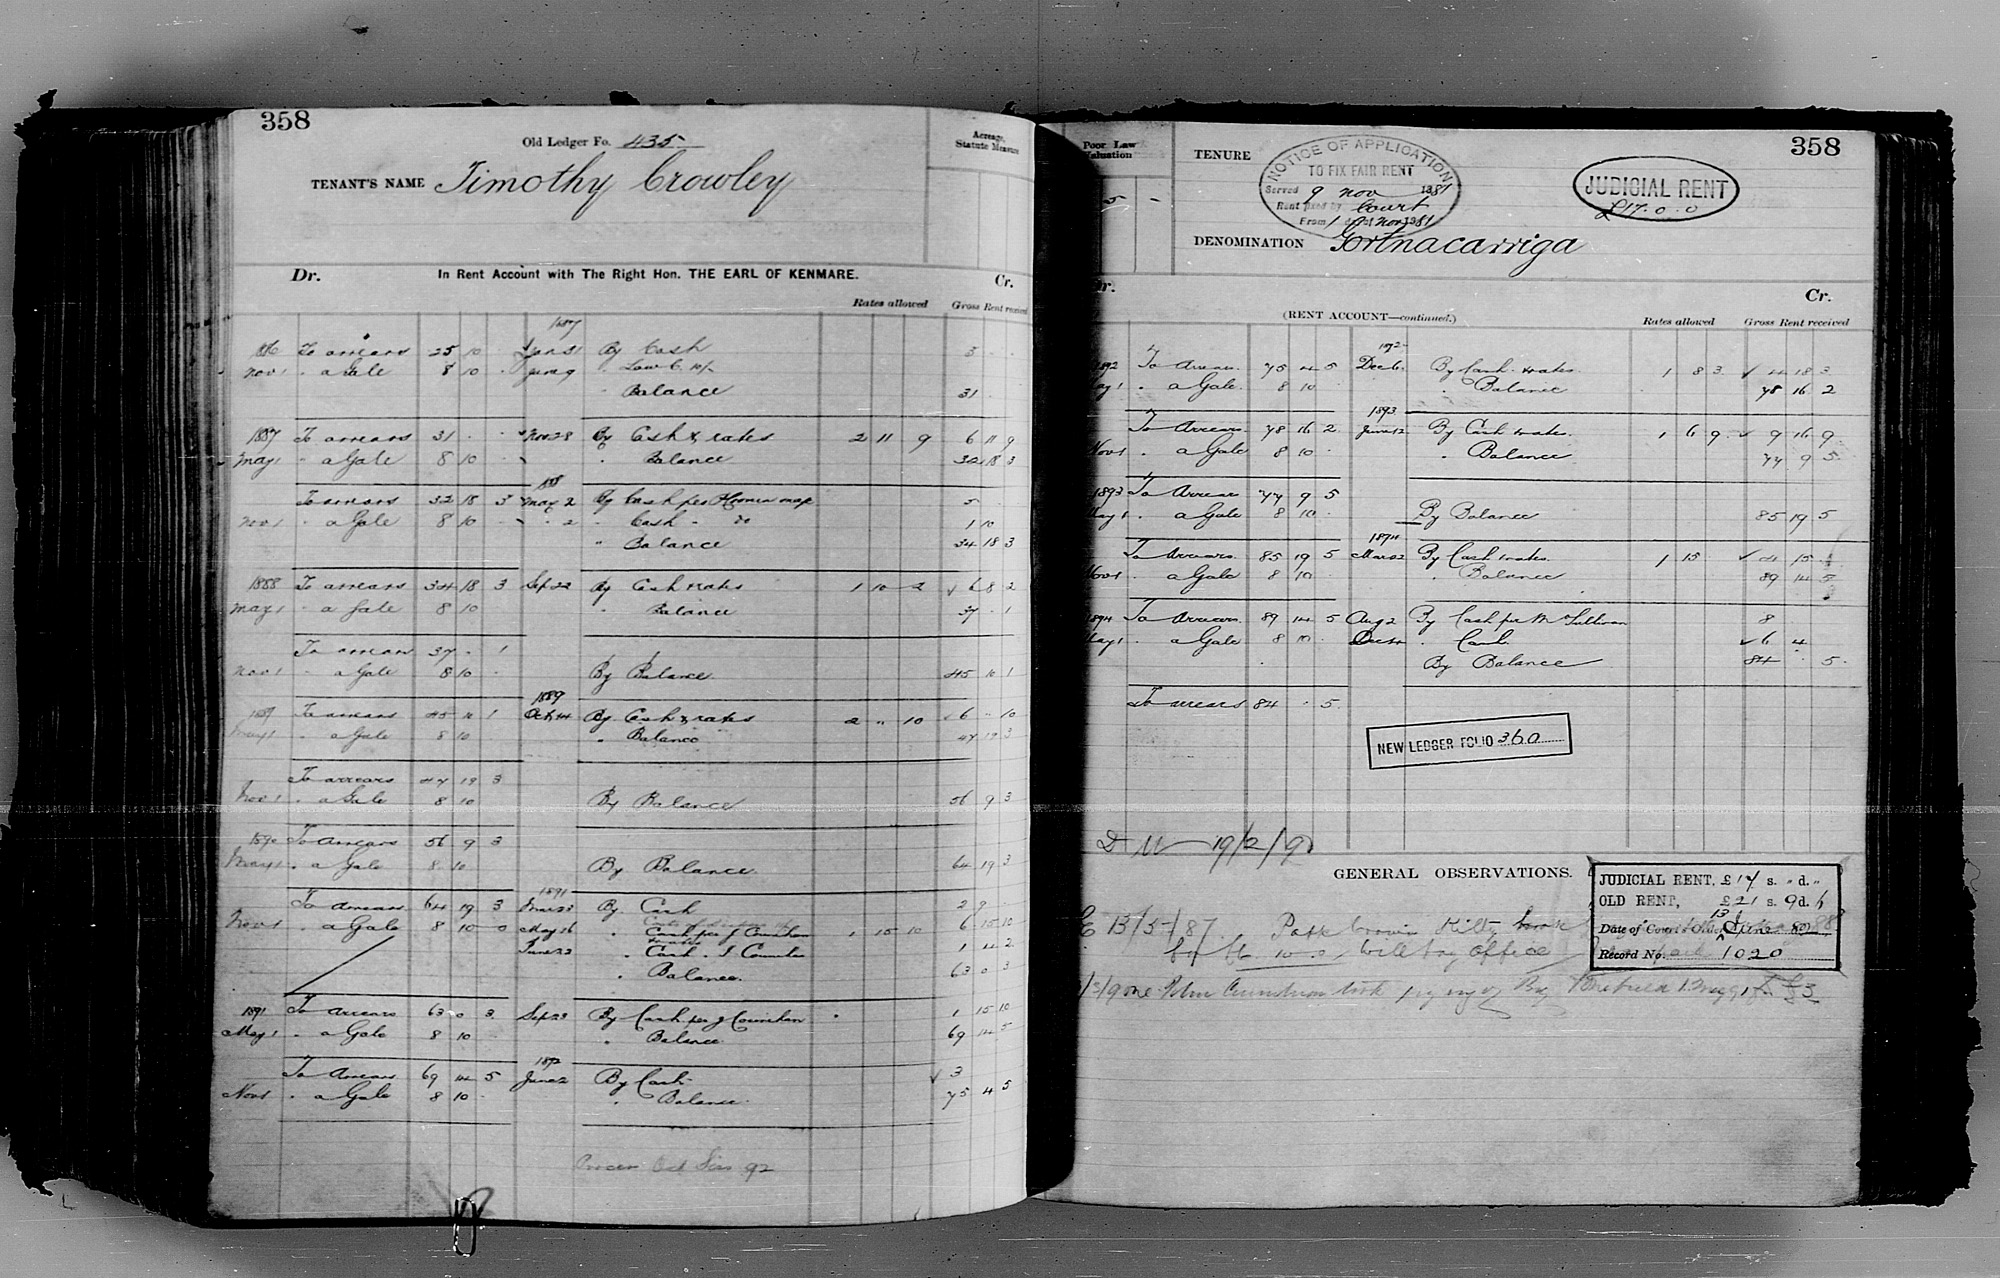 358
Old Ledger Fo. 435
Acreage, Statute Measure
TENANT'S NAME Timothy Crowley
Dr. In Rent Account with The Right Hon. THE EARL OF KENMARE. Cr.
Rates allowed Gross Rent received
1887
To arrears 25 10 Jan 31 By Cash 3
Nov 1 " a Gale 8 10 June 9 " Law C. 10/-
Balance 31
1887 To arrears 31 Nov 28 By Cash & rates 2 11 9 6 11 9
May 1 " a Gale 8 10 " Balance 32 18 3
188
To arrears 32 18 3 May 2 By Cash per 5
Nov 1 " a Gale 8 10 " 2 " Cash " do 1 10
" Balance 34 18 3
1888 To arrears 34 18 3 Sep 22 By Cash & rates 1 10 2 6 8 2
May 1 " a Gale 8 10 " Balance 37 " 1
To arrears 37 " 1
Nov 1 a Gale 8 10 By Balance 45 10 1
1889
1889 To arrears 45 10 1 Oct 14 By Cash & rates 2 " 10 6 " 10
May 1 " a Gale 8 10 " Balance 47 19 3
To arrears 47 19 3
Nov 1 " a Gale 8 10 By Balance 56 9 3
1890 To arrears 56 9 3
May 1 " a Gale 8 10 By Balance 64 19 3
1891
To arrears 64 19 3 Mar 23 By Cash 2 9
Nov 1 " a Gale 8 10 0 May 16 " Cash per J Counihan 1 15 10 6 15 10
June 23 " Cash J Counihan 1 4 2
" Balance 63 0 3
1891 To Arrears 63 0 3 Sep 23 By Cash per J Counihan 1 15 10
May 1 " a Gale 8 10 " Balance 69 14 5
1892
To Arrears 69 14 5 June 2 By Cash 3
Nov 1 " a Gale 8 10 " Balance 75 4 5
92
358
Poor Law Valuation
5 -
TENURE
NOTICE OF APPLICATION
TO FIX FAIR RENT
Served 9 Nov 1881
Rent fixed by Court
From 1 Nov 1881
JUDICIAL RENT
£17.0.0
DENOMINATION Gortnacarriga
Dr. Cr.
(RENT ACCOUNT—continued.)
Rates allowed Gross Rent received
1892
1892 To Arrears 75 4 5 Dec 6 By Cash & rates 1 8 3 4 18 3
May 1 " a Gale 8 10 " Balance 78 16 2
1893
To Arrears 78 16 2 June 12 By Cash & rates 1 6 9 9 16 9
Nov 1 " a Gale 8 10 " Balance 77 9 5
1893 To Arrears 77 9 5
May 1 " a Gale 8 10 By Balance 85 19 5
1894
To Arrears 85 19 5 Mar 2 By Cash & rates 1 15 4 15
Nov 1 " a Gale 8 10 " Balance 89 14 5
1894 To Arrears 89 14 5 Aug 2 By Cash per M Sullivan 8
May 1 " a Gale 8 10 Dec " Cash 6 4
By Balance 84 " 5
To arrears 84 " 5
NEW LEDGER FOLIO 360
19/2/9
GENERAL OBSERVATIONS.
JUDICIAL RENT, £17 s. " d. "
OLD RENT, £21 s. 9 d. 6
Date of Court's Order
Record No. 1020
13/5/87
will pay office